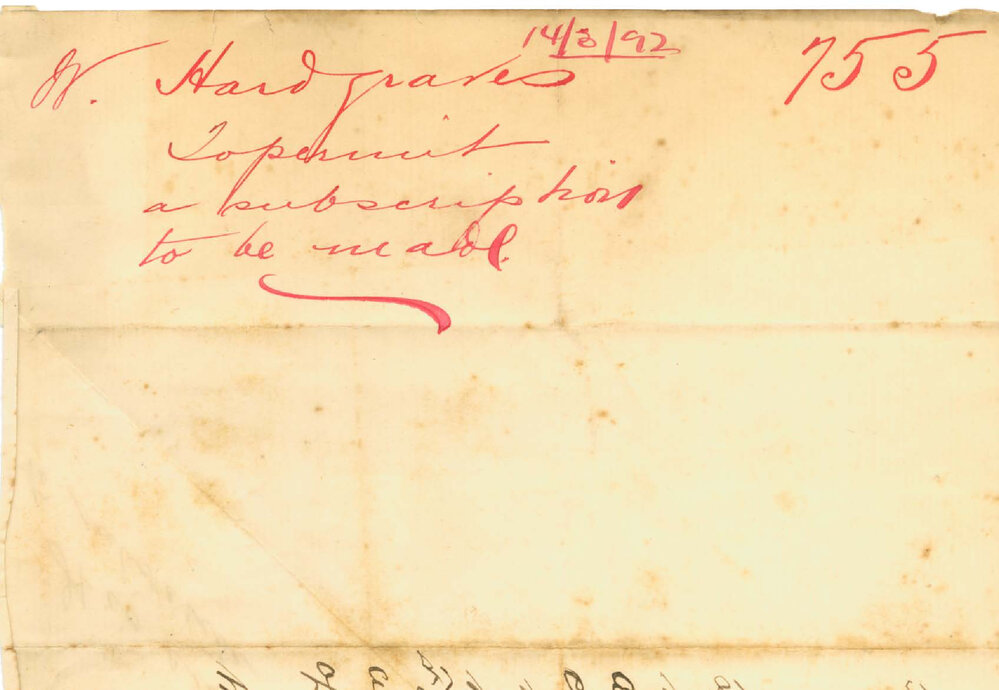 14/3/92
W. Hardgraves 755
To permit
a subscription
to be made.